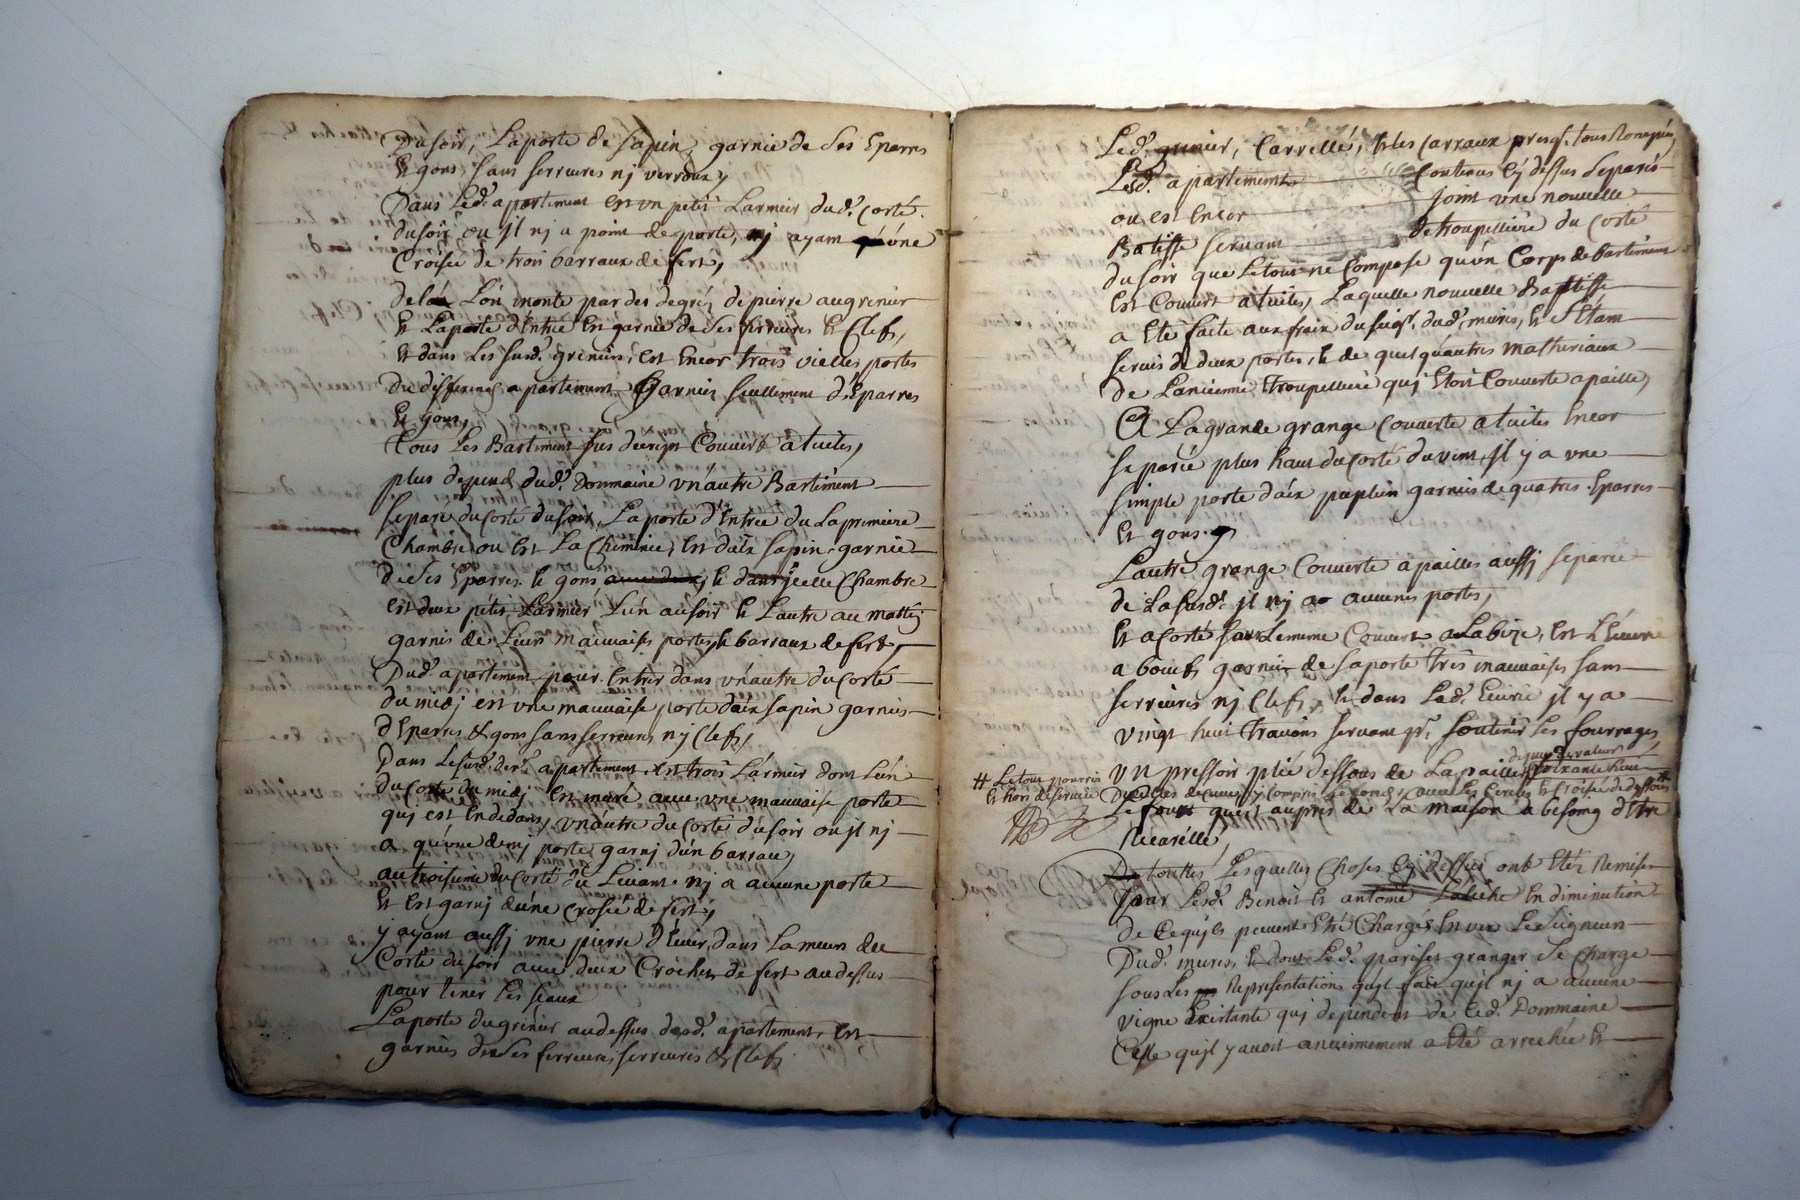 Du soir, La porte de sapin, garnie de ses Eparres
Et gons, sans serrures nj verroux,
Dans Led. apartement est vn petit Larmier dud. Corté
du soir ou jl nj a point de porte, nj ayam qu'úne
Croisée de trois barraux de fert,
de là L'on monte par des degréz de pierre au grenier
Et La porte d'Entrée Est garnie de ses serrures Et Clefs,
Et dans Les susd. greniers, est Encor trois vielles portes
du differends apartements Garnies seullement d'Eparres
Et gons,
Tous Les Bastiment sus decrips Couvert à tuiles,
plus depend dud. Dommaine vn'autre Bartiment
separé du Corté du soir, La porte d'Entrée du La premiere
Chambre ou est La Cheminée, Est d'aix sapin garnie
de ses Eparres Et gons Et dans jcelle Chambre
est deux petit Larmier L'ún au soir Et L'autre au mattin
garnis de Leurs mauvaises portes, Et barraux de fert,
Dud. apartement pour Entrer dans vn'autre du Corté
du midj est vne mauvaise porte d'aix sapin garnies
d'Eparres Et gons sans serrures, nj Clefs,
Dans Le susd. der. apartement, Est trois Larmier dont L'ún
du Corté du midj Est muré avec vne mauvaise porte
quj est En dedans, vn'autre du Corté du soir ou jl nj
a qu'úne demj porte garnj d'ún barrau,
au troisieme du Corté du Levant nj a aucune porte
Et Est garnj d'úne Croiseé de fert,
y ayant aussj vne pierre d'Evier, dans La meur du
Corté du soir avec deux Crochets de fert au dessus
pour tenir Les seaux
La porte du grenier au dessus desd. apartement, Est
garnies de ses ferrures, serrures Et Clefs
Led. grenier, Carrellés, Et Les Carraux presq. tous Rompús,
Lesd. apartements Contenus Cÿ dessus separés
ou est Encor joint vne nouvelle
Batisse servant de troupelliere du Corté
du soir que Le tout ne Compose qu'ún Corps de bartiment
Est Couvert à tuiles, Laquelle nouvelle Batisse
a Eté faite aux fraix du seigr. dud. mures, Et s'Etam
servis de deux portes, Et de quelqu'autres matheriaux
De L'ancienne troupelliere quj Etoit Couverte a paille,
A La grande grange Couverte à tuiles Encor
separée plus haut du Corté du vent, jl y a vne
simple porte d'aix puplien garnies de quatres Eparres
Et gons.
L'autre grange Couverte à pailles aussj separée
de La susd. jl nj a aucunes portes,
Et a Corté sous Le meme Couvert a La bize, est L'Ecurie
a boeufs garnies de sa porte très mauvaises sans
serrures nj Clefs, Et dans Lad. Ecurie jl y a
vingt huit travons servant pr. soutenir Les fourrages,
de peu de valeur
vn pressoir plié dessous de La paille
# Le tout pourris
Et hors de service
Le fourt qu'est aupres de La maison a besoing d'Etre
Recarellé,
touttes Lesquelles Choses Cÿ dessus ont Etéz Remises
par Lesd. Benoit Et antoine En diminution
de Ce qu'jls peuvent Etré Chargés Envers Le seigneur
Dud. mures, Et dont Led. parises granger se Charge
sous Les Representations qu'jl fait qu'jl nj a aucune
vigne Existante quj dependent de Ced. Dommaine
Celle qu'jl y avoit anciennement a Eté arrachée Et